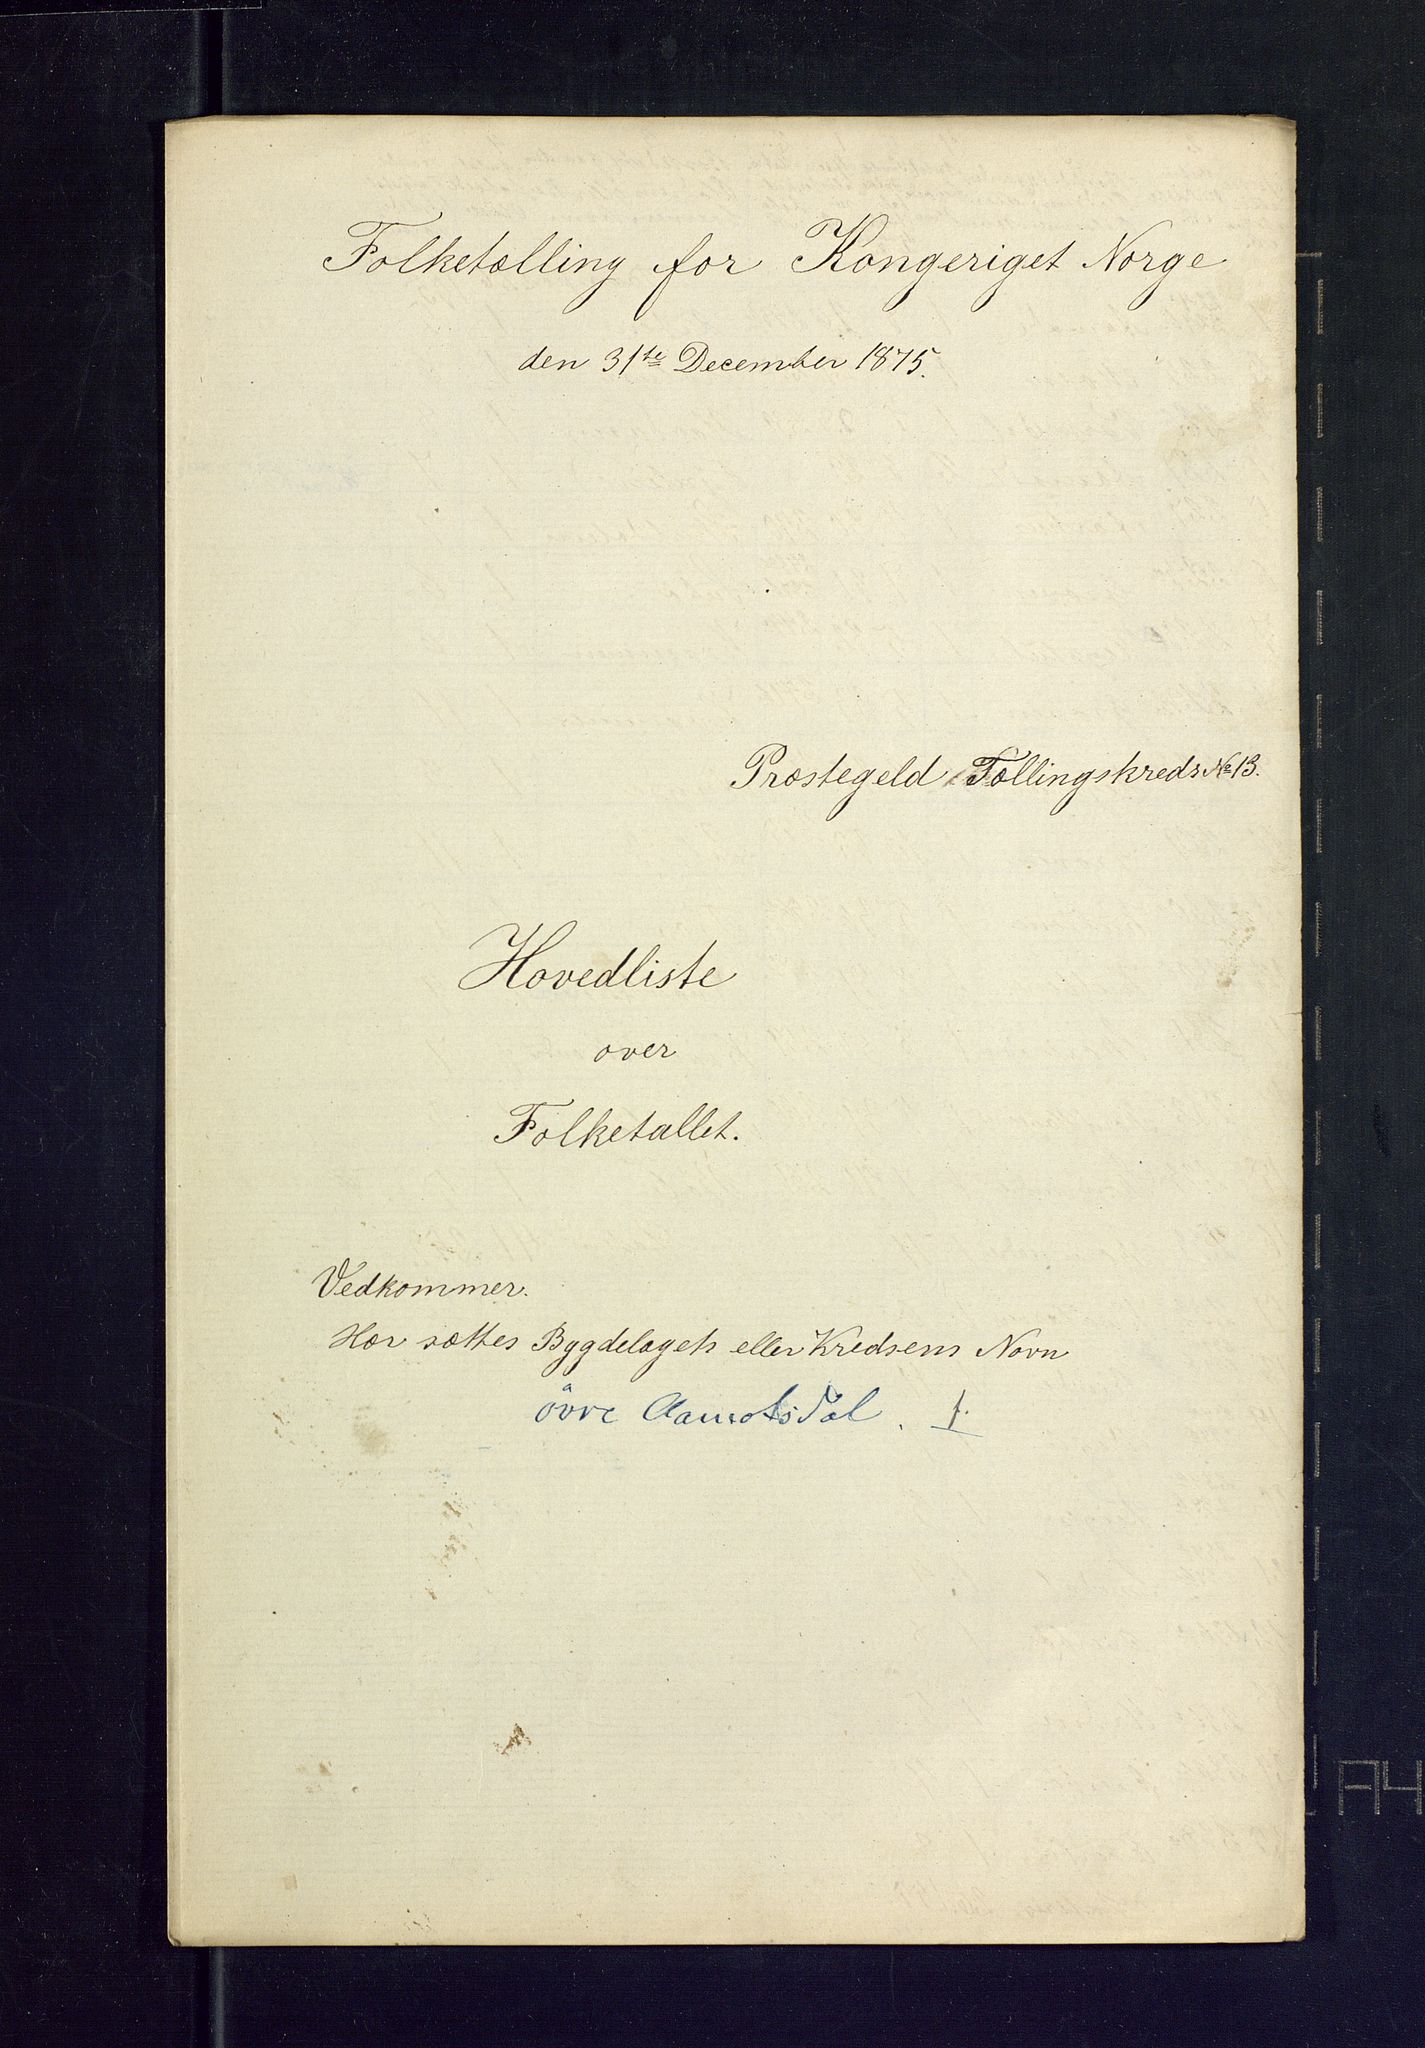 Folketælling for Kongeriget Norge
den 31te December 1875.
Præstegeld Tællingskreds No 13.
Hovedliste
over
Folketallet.
Vedkommer.
Her sættes Bygdelagets eller Kredsens Navn
övre Aamotsdal.